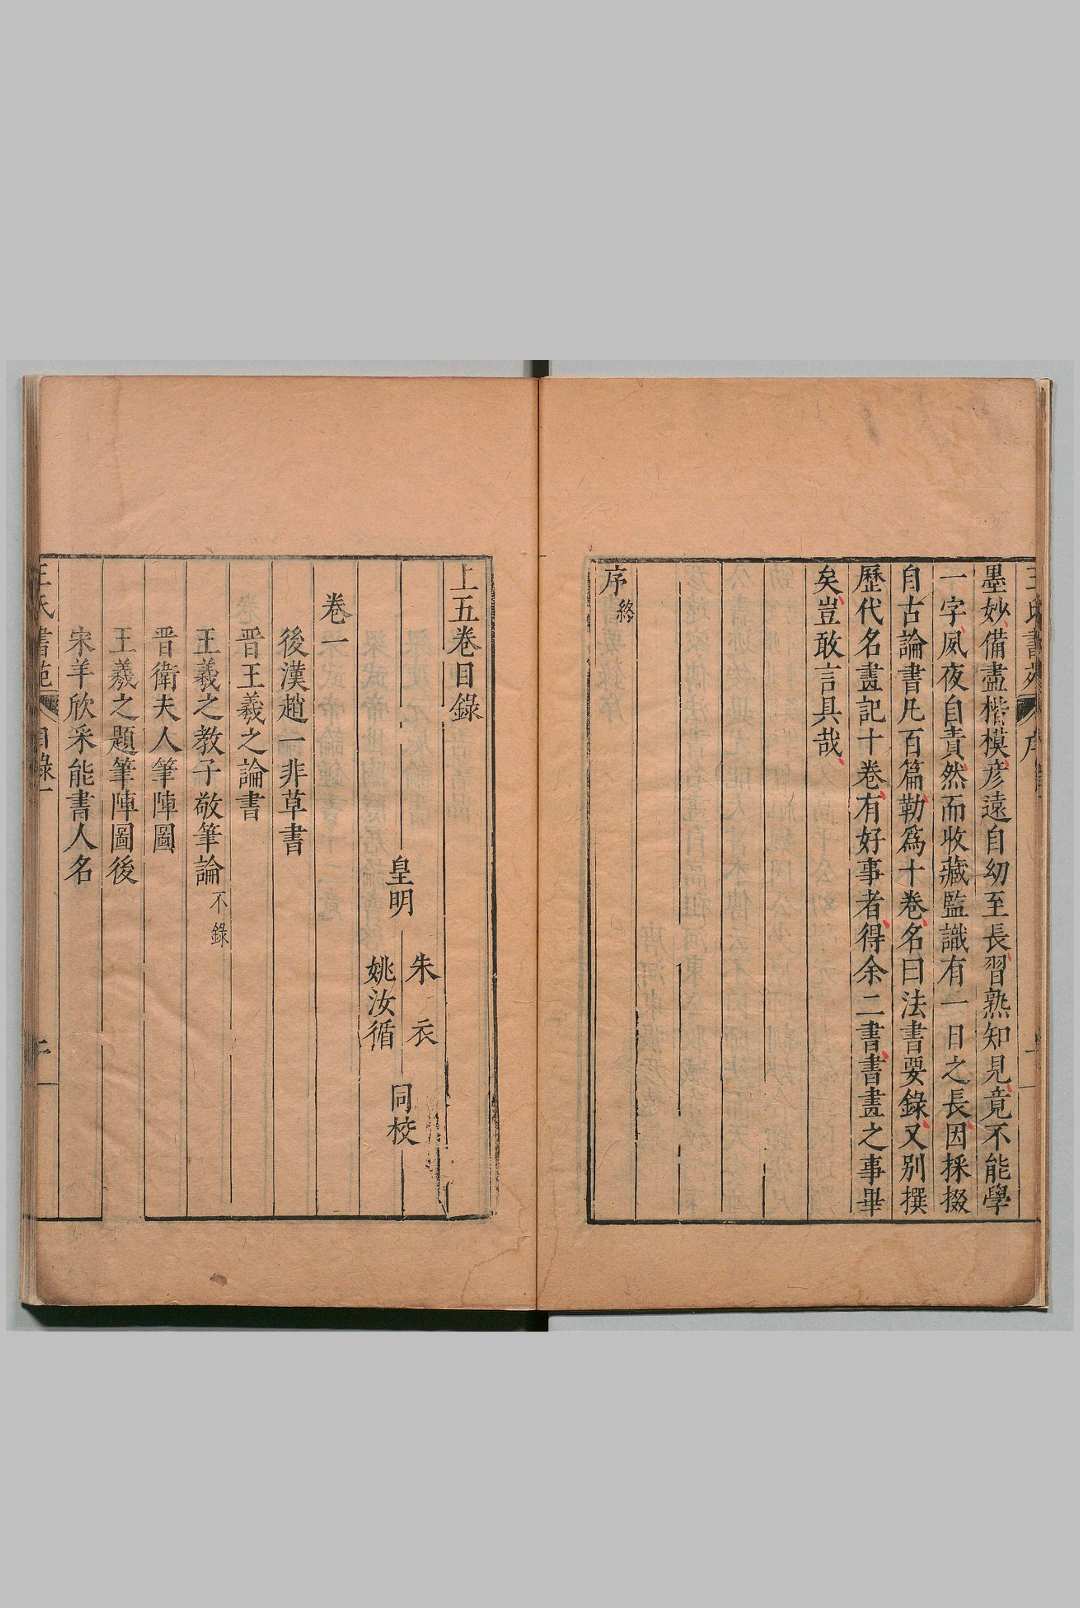 墨妙備盡楷模彦遠自幼至長習熟知見竟不能學
一字夙夜自責然而收藏監識有一日之長因採掇
自古論書凡百篇勒為十卷名曰法書要錄又別撰
歷代名畫記十卷有好事者得余二書書畫之事畢
矣豈敢言具哉
序終
上五卷目錄
皇明
朱衣
姚汝循
同校
卷一
後漢趙一非草書
晋王羲之論書
王羲之教子敬筆論不錄
晋衛夫人筆陣圖
王羲之題筆陣圖後
宋羊欣采能書人名
王氏書苑 目錄一